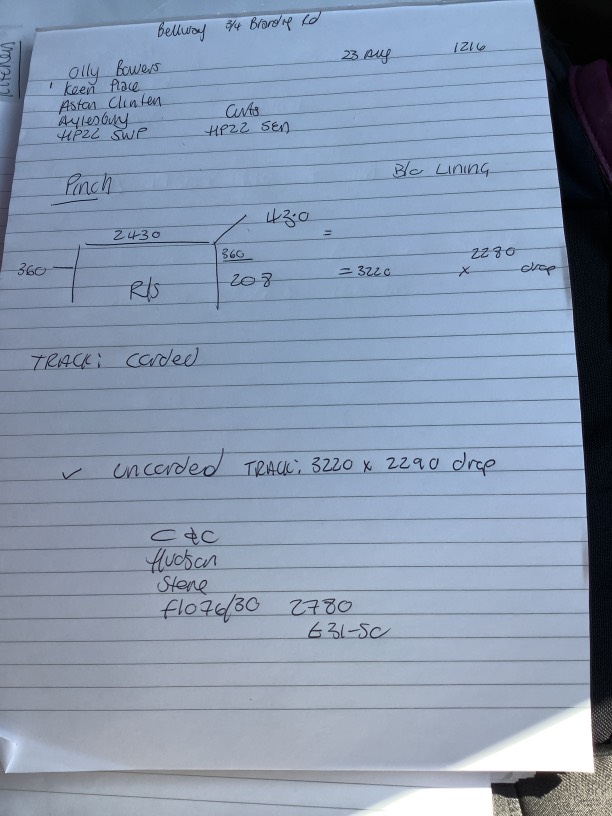 Bellway 3/4 Rd
23 Aug 1216
Olly Bowers
1 Keen Place
Aston Clinton
Aylesbury Cuts
HP22 5WP HP22 5EN
Pinch B/c LINING
2430 430 =
360 R/s 360 208 = 3220 x 2280 drop
TRACK: corded
✓ uncorded TRACK: 3220 x 2290 drop
C & C
Hudson
Stone
f1076/30 2780
£31-50